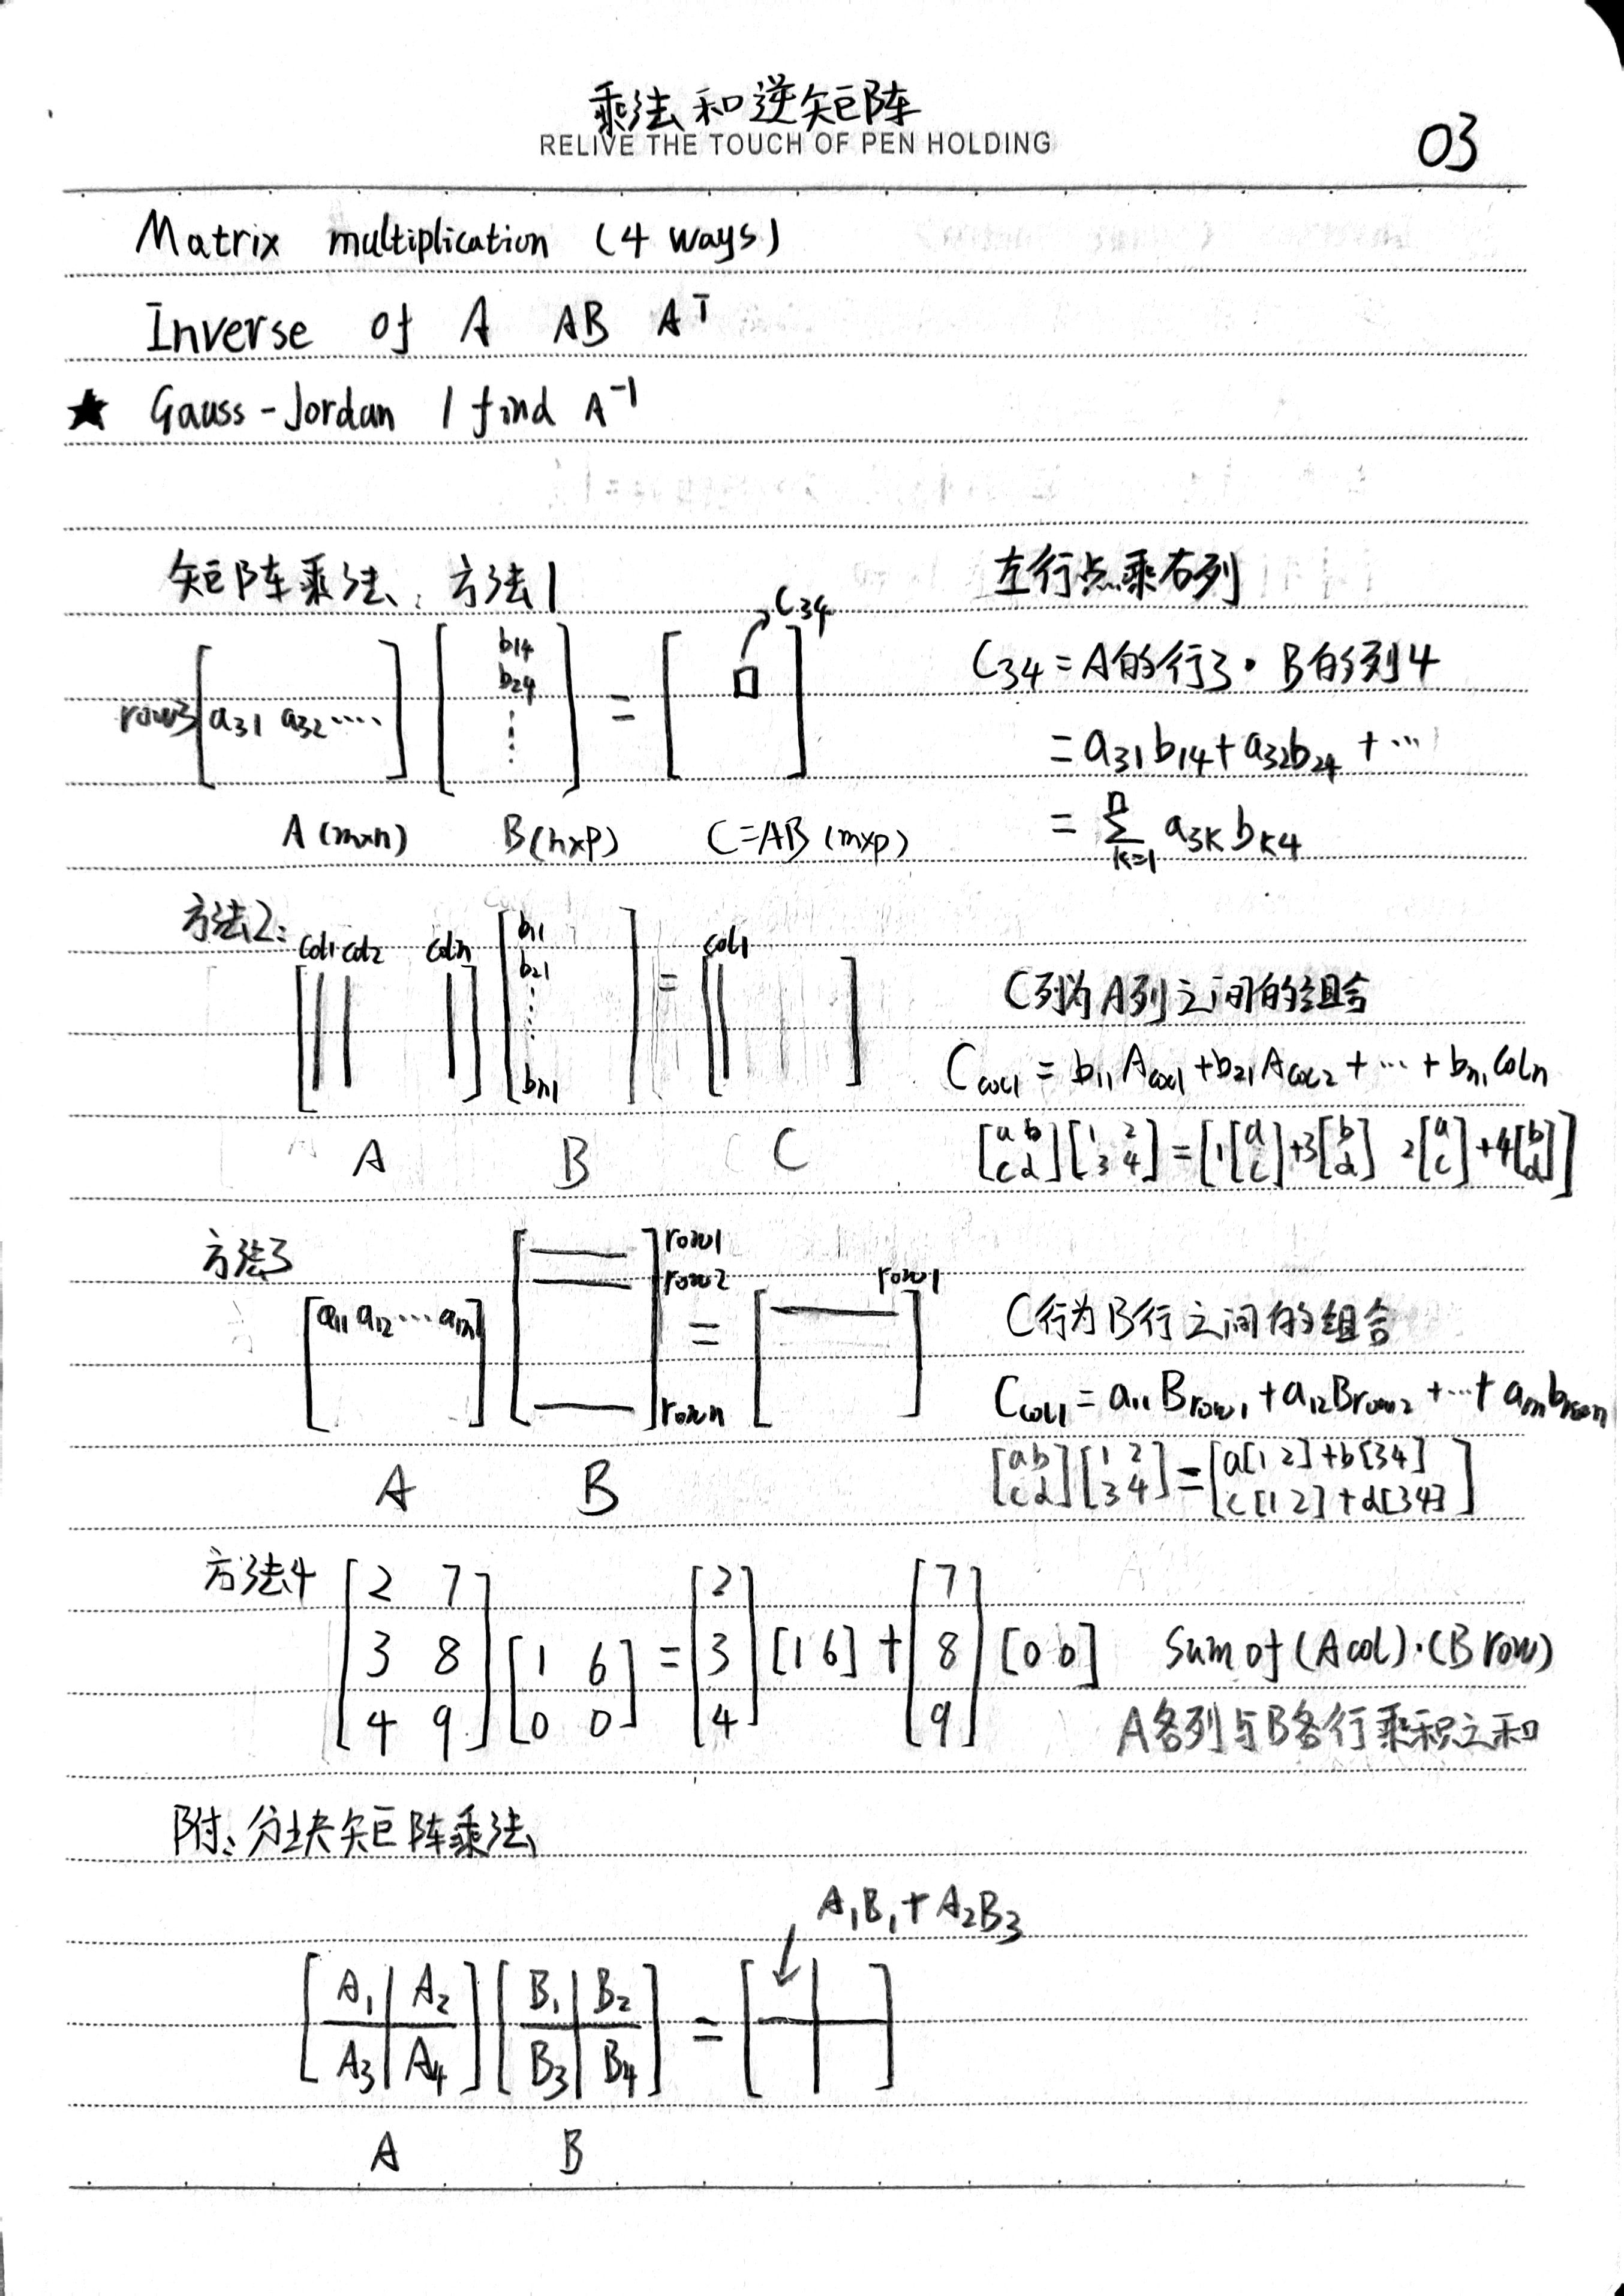 乘法和逆矩阵
RELIVE THE TOUCH OF PEN HOLDING
03
Matrix multiplication (4 ways)
Inverse of A AB Aᵀ
★ Gauss-Jordan / find A⁻¹
矩阵乘法: 方法1
左行点乘右列
row3 [a₃₁ a₃₂ ····] [b₁₄ b₂₄ ⋮] = [□] → C₃₄
C₃₄ = A的行3 · B的列4
= a₃₁b₁₄ + a₃₂b₂₄ + ···
= Σₖ₌₁ⁿ a₃ₖ bₖ₄
A (m×n) B (n×p) C=AB (m×p)
方法2:
col1 col2 coln [b₁₁ b₂₁ ⋮ bₙ₁] = col1
A B C
C列为A列之间的组合
C col1 = b₁₁ A col1 + b₂₁ A col2 + ··· + bₙ₁ coln
[a b; c d] [1 2; 3 4] = [1[a; c] + 3[b; d] 2[a; c] + 4[b; d]]
方法3
[a₁₁ a₁₂ ··· a₁ₙ] [row1 row2 rown] = [row1]
A B
C行为B行之间的组合
C col1 = a₁₁ B row1 + a₁₂ B row2 + ··· + a₁ₙ b rown
[a b; c d] [1 2; 3 4] = [a[1 2] + b[3 4]; c[1 2] + d[3 4]]
方法4 [2 7; 3 8; 4 9] [1 6; 0 0] = [2; 3; 4] [1 6] + [7; 8; 9] [0 0]
Sum of (A col)·(B row)
A各列与B各行乘积之和
附: 分块矩阵乘法
A₁B₁ + A₂B₃
[A₁ A₂; A₃ A₄] [B₁ B₂; B₃ B₄] = [ ]
A B